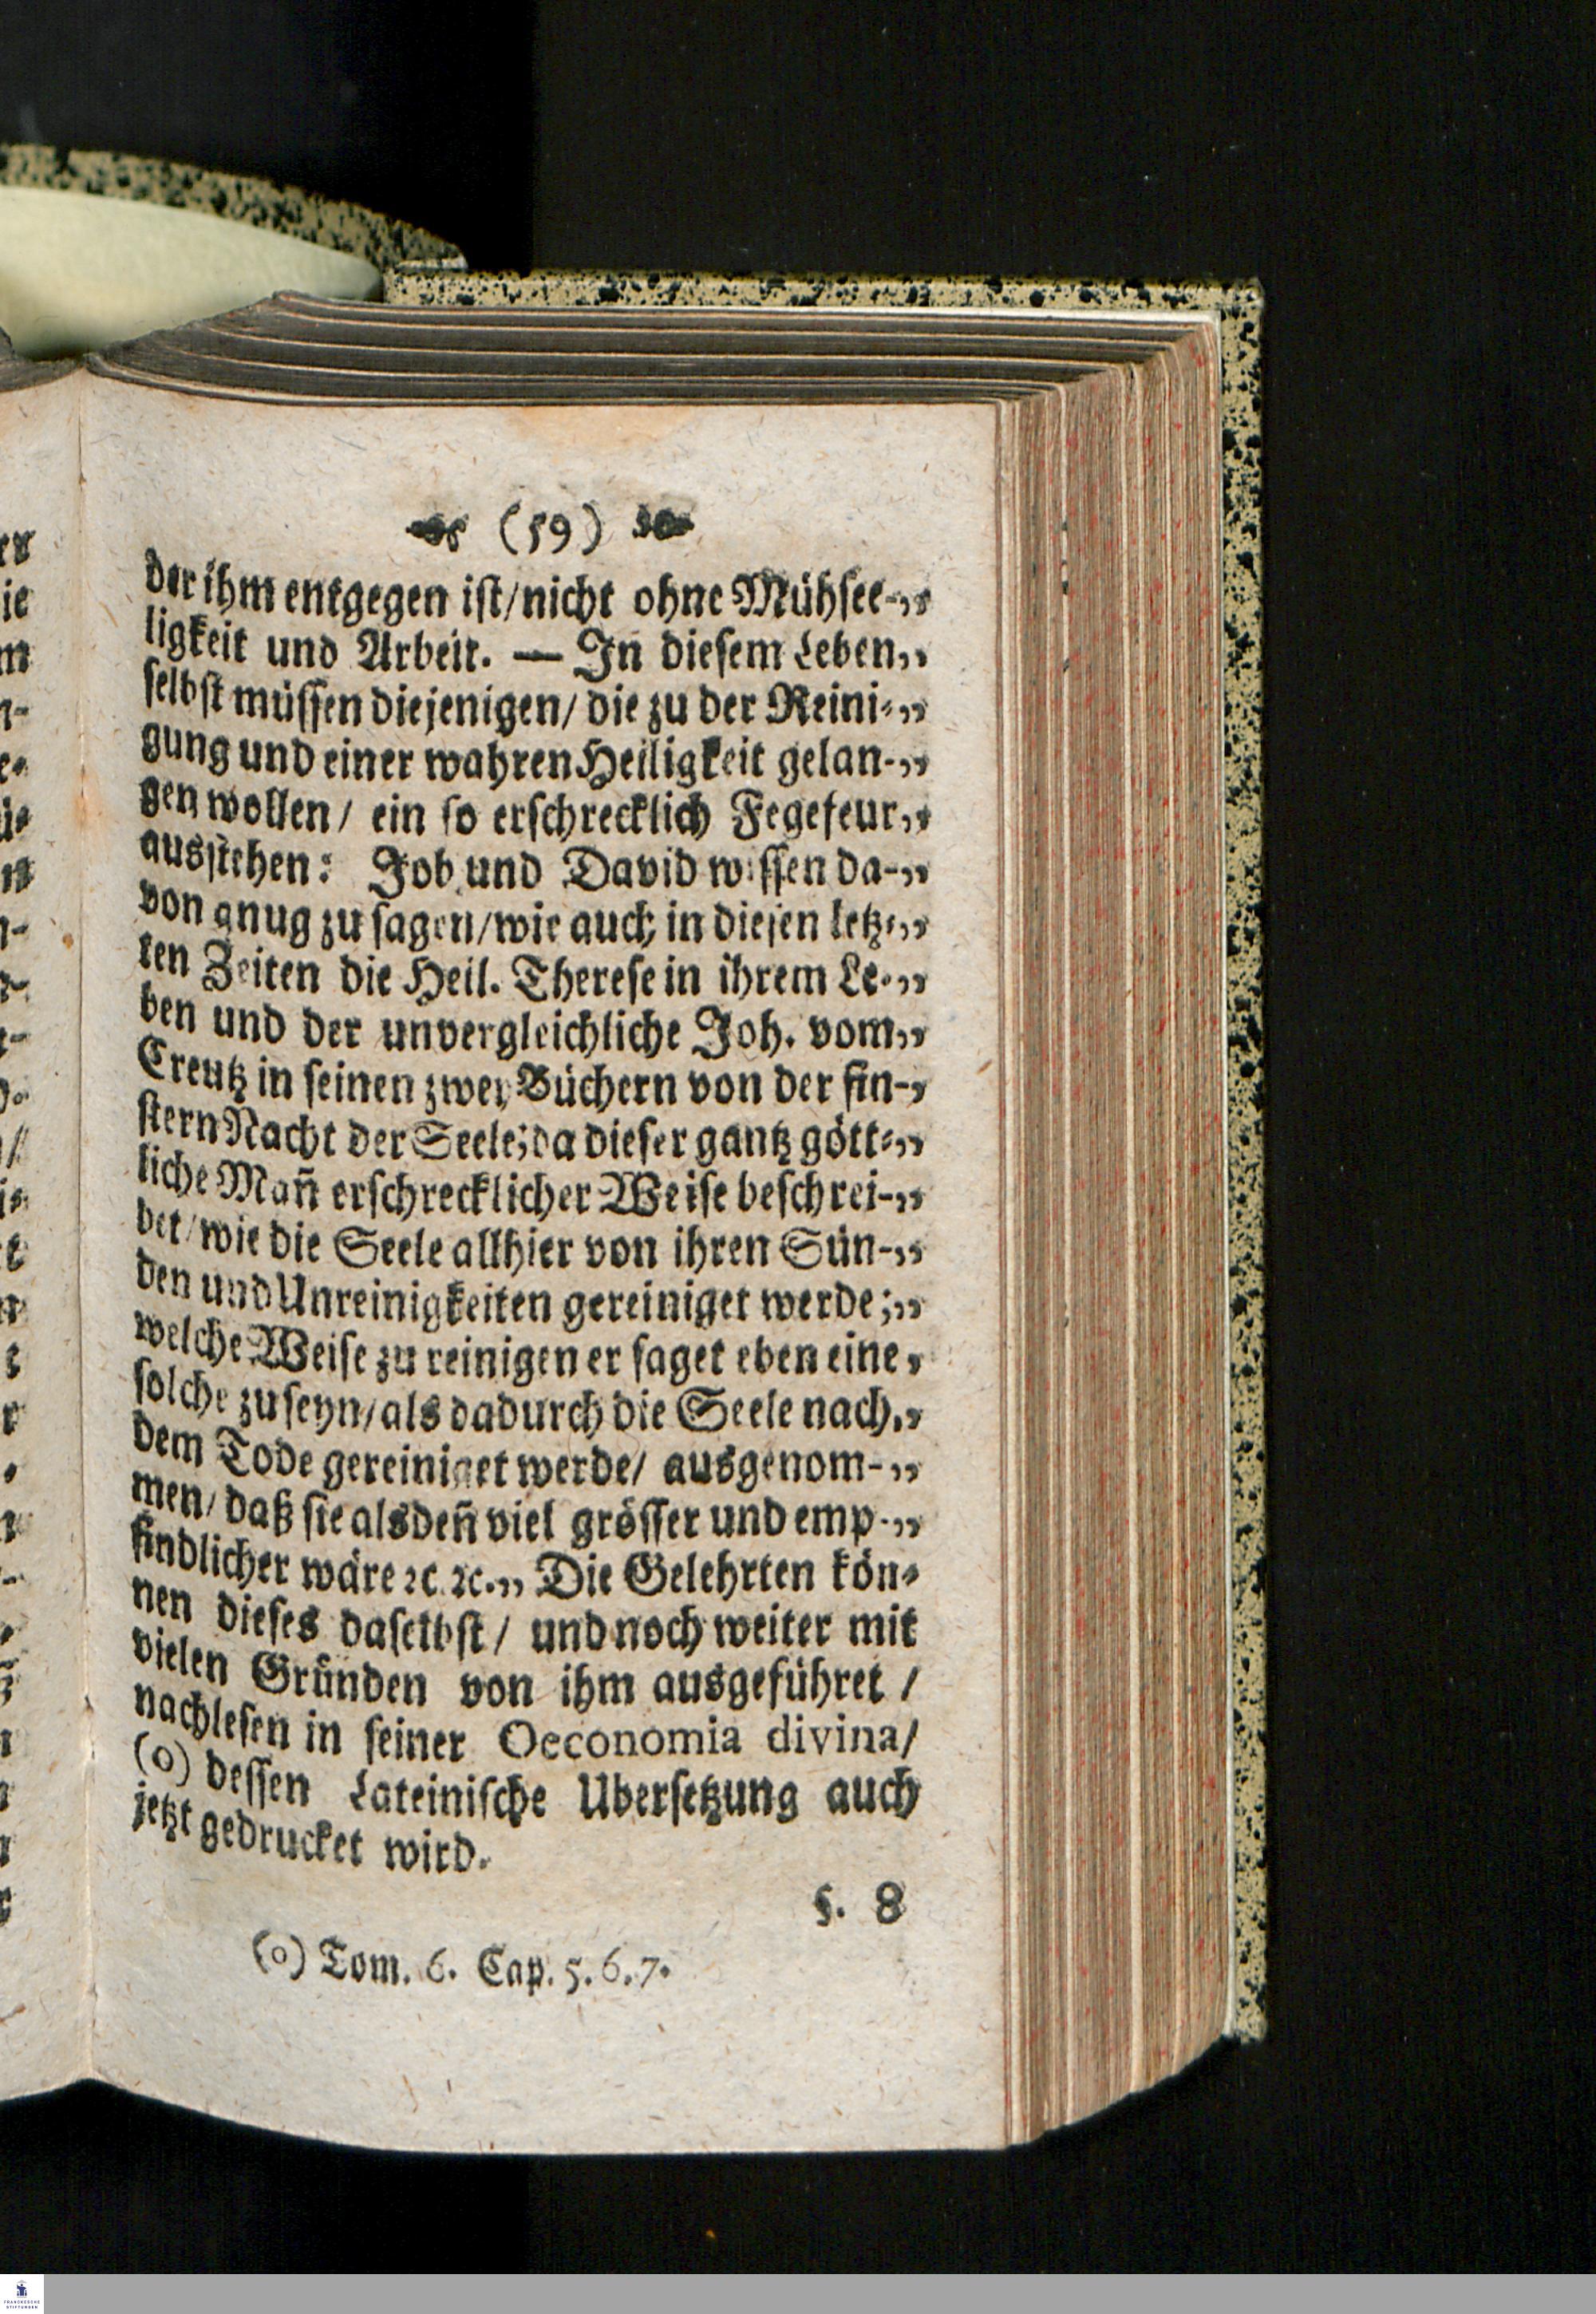 (59)
der ihm entgegen ist/nicht ohne Mühsee-„
ligkeit und Arbeit. — In diesem Leben„
selbst müssen diejenigen/ die zu der Reini-„
gung und einer wahren Heiligkeit gelan-„
gen wollen/ ein so erschrecklich Fegefeur„
ausstehen: Job und David wissen da-„
von gnug zu sagen/wie auch in diesen letz-„
ten Zeiten die Heil. Therese in ihrem Le-„
ben und der unvergleichliche Joh. vom„
Creutz in seinen zwey Büchern von der fin-„
stern Nacht der Seele; da dieser gantz gött-„
liche Mañ erschrecklicher Weise beschrei-„
bet/wie die Seele allhier von ihren Sün-„
den und Unreinigkeiten gereiniget werde;„
welche Weise zu reinigen er saget eben eine„
solche zu seyn/als dadurch die Seele nach„
dem Tode gereiniget werde/ ausgenom-„
men/ daß sie alsdeñ viel grösser und emp-„
findlicher wäre ꝛc. ꝛc.„ Die Gelehrten kön-
nen dieses daselbst/ und noch weiter mit
vielen Gründen von ihm ausgeführet /
nachlesen in seiner Oeconomia divina/
(o) dessen Lateinische Ubersetzung auch
jetzt gedrucket wird.
§. 8
(o) Tom. 6. Cap. 5. 6. 7.
FRANCKESCHE
STIFTUNGEN